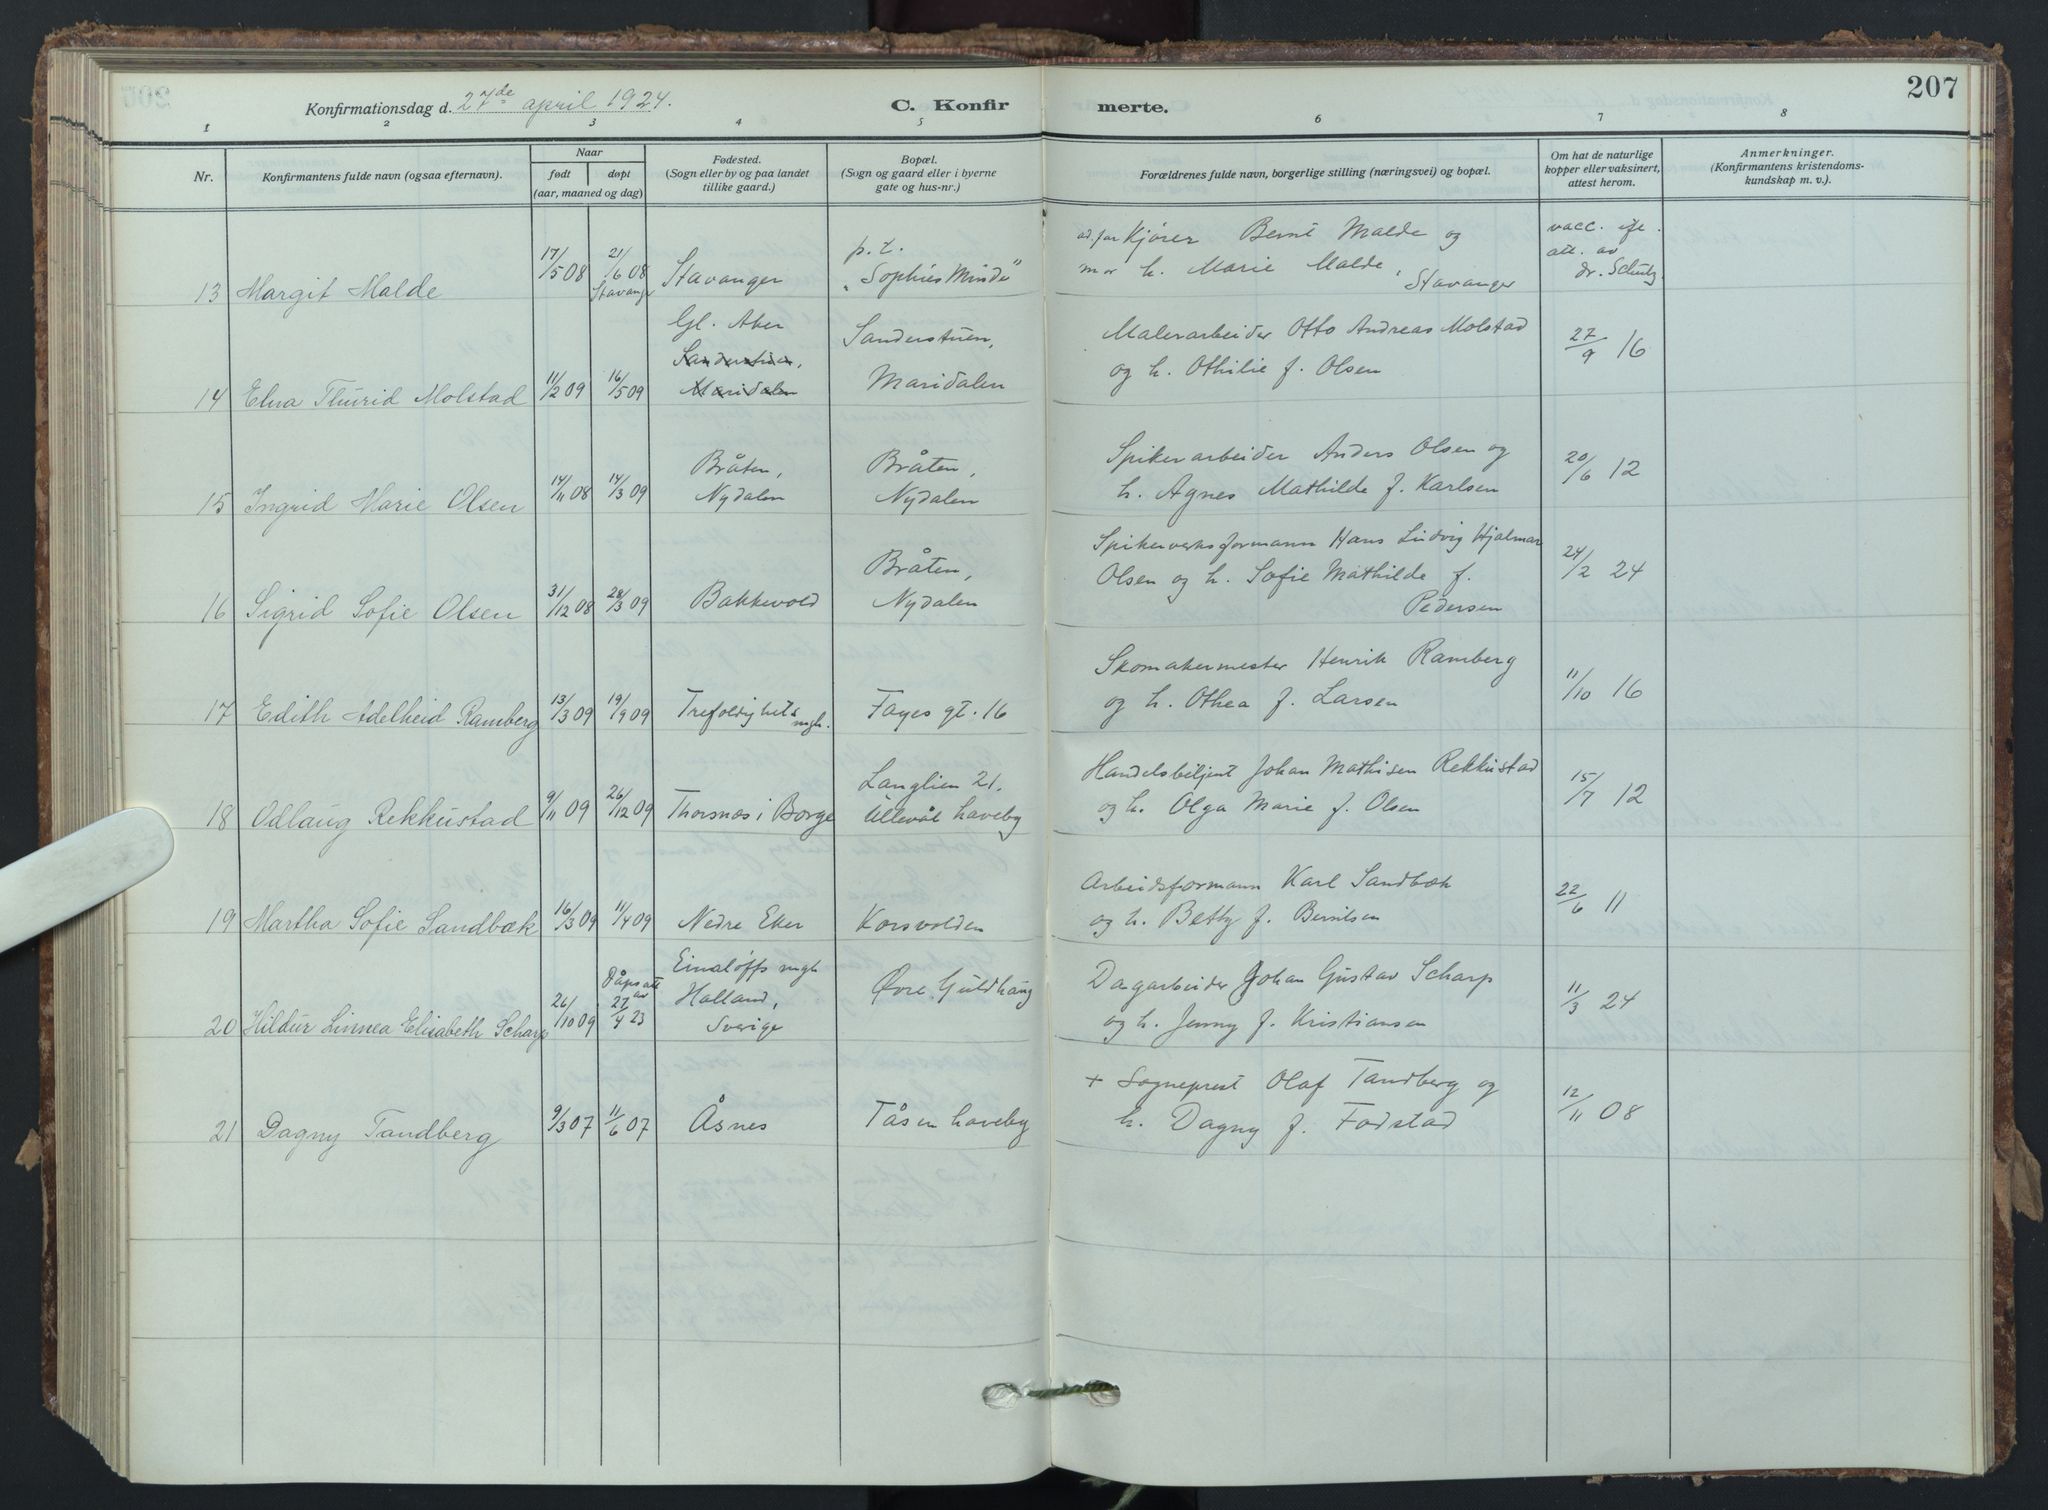 207
Konfirmationsdag d. 27de april 1924.
C. Konfirmerte.
1 2 3 4 5 6 7 8
Nr.
Konfirmantens fulde navn (ogsaa efternavn).
Naar
født
døpt
(aar, maaned og dag)
Fødested.
(Sogn eller by og paa landet
tillike gaard.)
Bopæl.
(Sogn og gaard eller i byerne
gate og hus-nr.)
Forældrenes fulde navn, borgerlige stilling (næringsvei) og bopæl.
Om hat de naturlige
kopper eller vaksinert,
attest herom.
Anmerkninger.
(Konfirmantens kristendoms-
kundskap m. v.).
13 Margit Malde
17/5 08
21/6 08
Stavanger
Stavanger
p. t.
"Sophies Minde"
ad. far Kjører Bernt Malde og
mor h. Marie Malde,
Stavanger
vacc. efr.
att. av
dr. Schutz
14 Elna Thurid Molstad
11/2 09
16/5 09
Gl. Aker
Sanderstuen,
Maridalen
Sanderstuen,
Maridalen
Malerarbeider Otto Andreas Molstad
og h. Othilie f. Olsen
27/9 16
15 Ingrid Marie Olsen
14/11 08
14/3 09
Bråten,
Nydalen
Bråten,
Nydalen
Spikerarbeider Anders Olsen og
h. Agnes Mathilde f. Karlsen
20/6 12
16 Sigrid Sofie Olsen
31/12 08
28/3 09
Bakkevold
Bråten,
Nydalen
Spikerverksformann Hans Ludvig Hjalmar
Olsen og h. Sofie Mathilde f.
Pedersen
24/2 24
17 Edith Adelheid Ramberg
13/3 09
19/9 09
Trefoldighets
mgh.
Fayes gt. 16
Skomakermester Henrik Ramberg
og h. Othea f. Larsen
11/10 16
18 Odlaug Rekkustad
9/11 09
26/12 09
Thorsnæs i Borge
Langlien 21.
Ullevål haveby
Handelsbetjent Johan Mathisen Rekkustad
og h. Olga Marie f. Olsen
15/7 12
19 Martha Sofie Sandbæk
16/3 09
11/4 09
Nedre Eker
Korsvolden
Arbeidsformann Karl Sandbæk
og h. Betty f. Berntsen
22/6 11
20 Hildur Linnea Elisabeth Scharp
26/10 09
Dåpsatt.
av
27/4 23
Einaløffs mgh
Halland,
Sverige
Øvre Guldhaug
Dagarbeider Johan Gustav Scharp
og h. Jenny f. Kristiansen
11/3 24
21 Dagny Tandberg
9/3 07
11/6 07
Åsnes
Tåsen haveby
+ Sogneprest Olaf Tandberg og
h. Dagny f. Fodstad
12/11 08